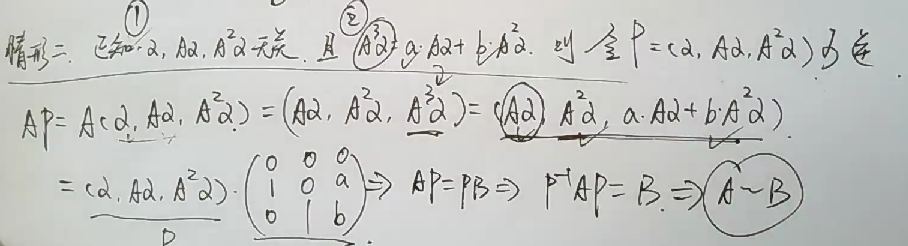 ① ②
情形二. 已知 α, Aα, A²α 无关. 且 A³α = a·Aα + b·A²α. 则 令 P = (α, Aα, A²α) 可逆
AP = A(α, Aα, A²α) = (Aα, A²α, A³α) = (Aα, A²α, a·Aα + b·A²α).
= (α, Aα, A²α) · (0 0 0
1 0 a
0 1 b) ⇒ AP = PB ⇒ P⁻¹AP = B. ⇒ A ~ B
P